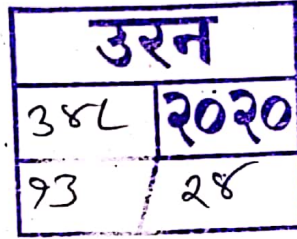 उरन
३४८ २०२०
१३ / २४